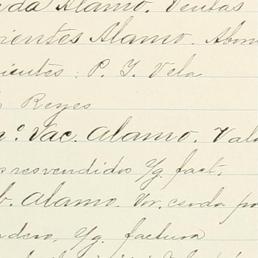 da Alamo. Ventas
rientes Alamo. Abon
ientes: P. Y. Vela
Reyes
Vac. Alamo. Val
resvendidos s/g fact.
b. Alamo. Vr. cerda po
adero, s/g. factura